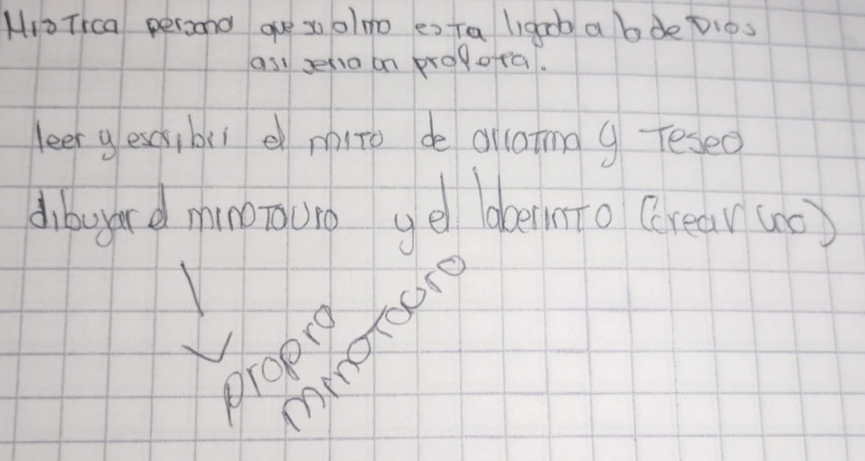 Mistica persona que su alma esta ligada a la de Dios
asi seria un profeta.
leer y escribir el mito de ariatma y Teseo
dibujar el minotauro y el laberinto (crear uno)
propro
minotauro